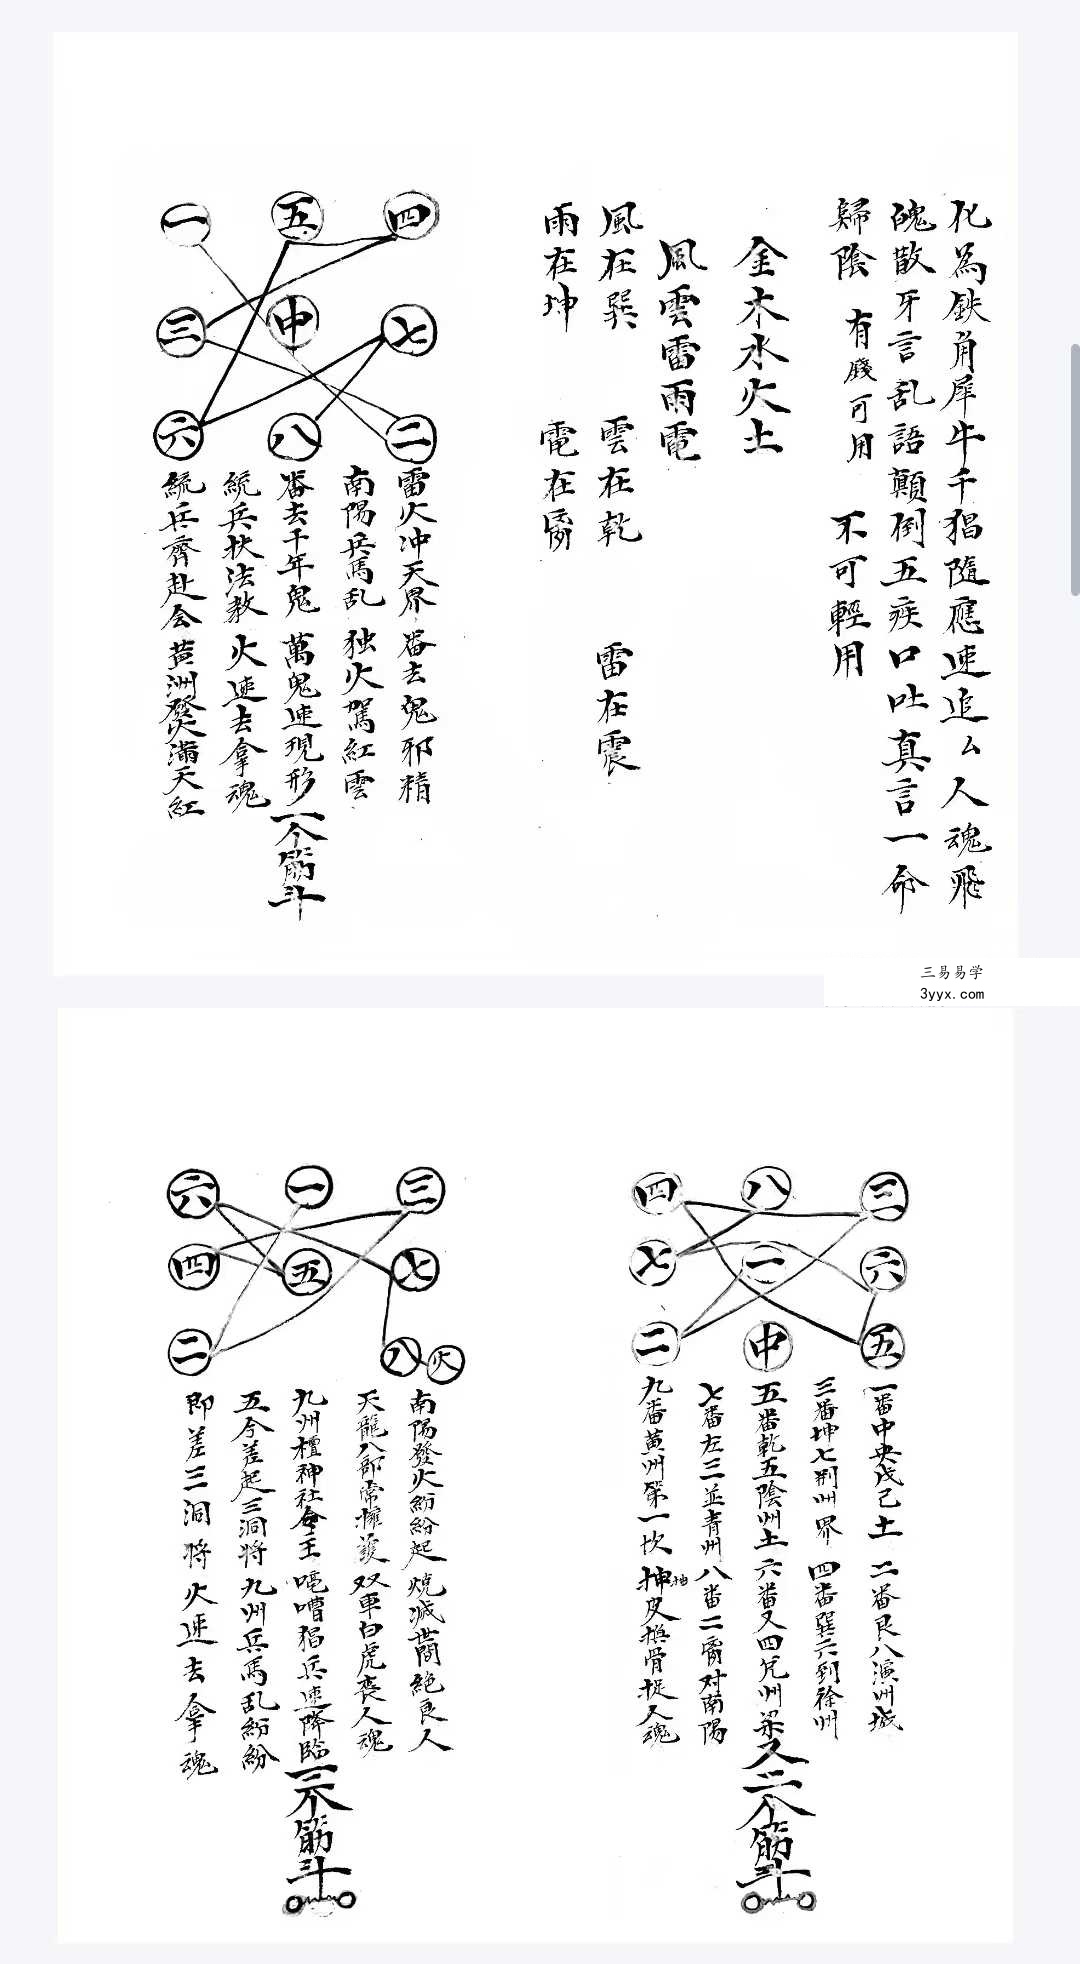 化為鉄角犀牛千猖隨應速追厶人魂飛
魄散牙言乱語顛倒五疾口吐真言一命
歸陰 有錢可用 不可輕用
金木水火土
風雲雷雨電
風在巽 雲在乾 雷在震
雨在坤 電在离
四
五
一
七
中
三
二
八
六
雷火冲天界 番去鬼邪精
南陽兵馬乱 独火駕紅雲
番去千年鬼 萬鬼速現形 一个筋斗
統兵扶法教 火速去拿魂
統兵齊赴会 黄洲發火滿天紅
三易易学
3yyx.com
三
八
四
六
一
七
五
中
二
一番中央戊己土 二番艮八演州城
三番坤七荆州界 四番巽六到徐州
五番乾五陰州土 六番又四兑州梁 又二个筋斗
七番左三並青州 八番二离对南陽
九番黄州第一坎 抽皮換骨捉人魂
抽
三
一
六
七
五
四
火
八
二
南陽發火紛紛起 燒滅世間絶良人
天龍八部常擁護 双車白虎喪人魂
九州檀神社令王 嘈猖兵速降臨 三个筋斗
五今差起三洞将 九州兵馬乱紛紛
即差三洞将 火速去拿魂